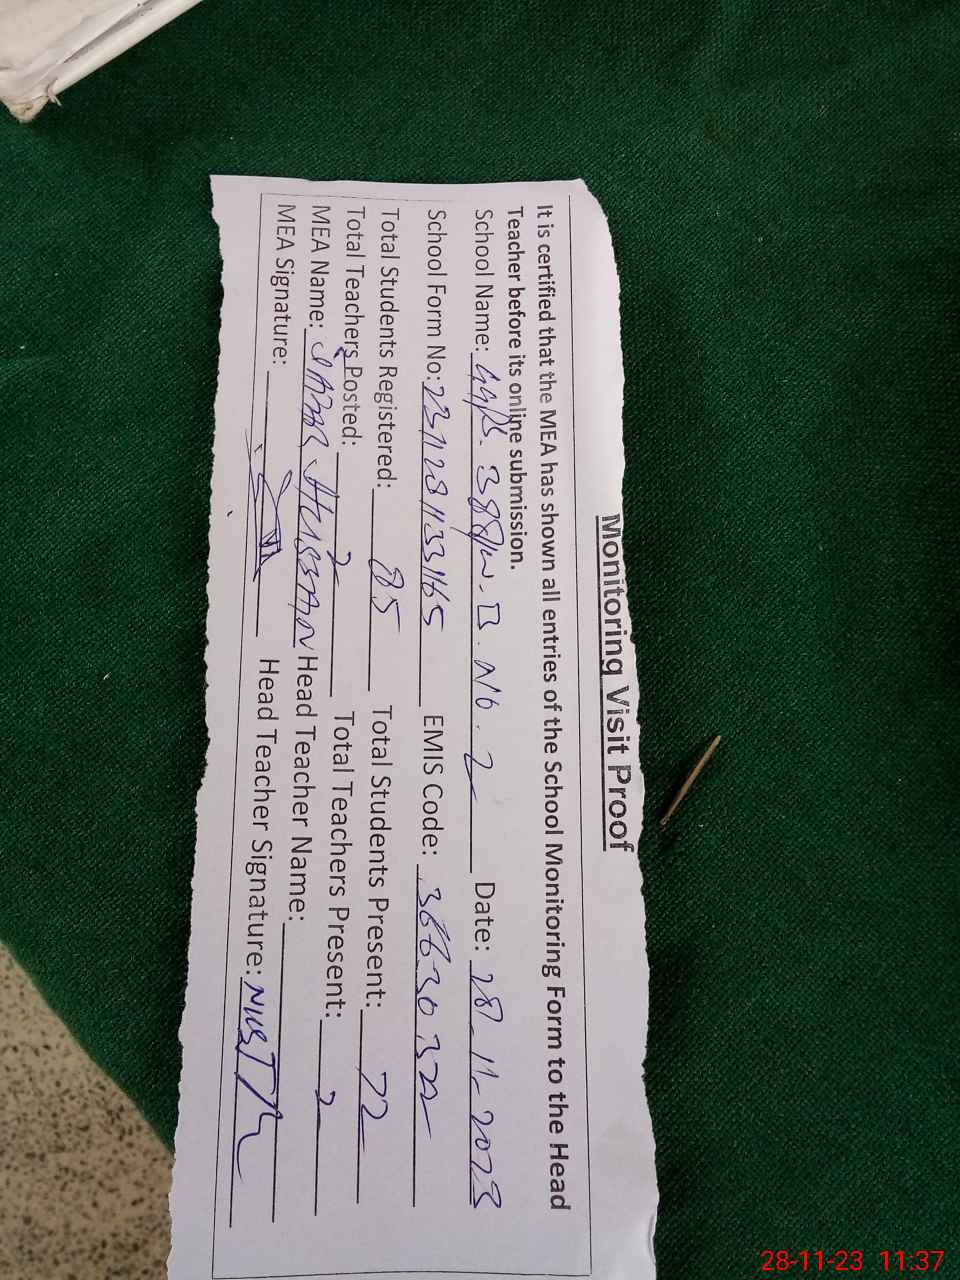 Monitoring Visit Proof
It is certified that the MEA has shown all entries of the School Monitoring Form to the Head
Teacher before its online submission.
School Name: 388/W.B. No. 2 Date: 28-11-2023
School Form No: 2311281133165 EMIS Code: 36630322
Total Students Registered: 85 Total Students Present: 72
Total Teachers Posted: 2 Total Teachers Present: 2
MEA Name: HUSSAIN Head Teacher Name:
MEA Signature: Head Teacher Signature:
28-11-23 11:37